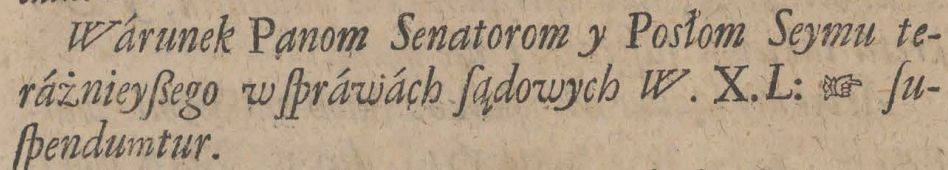 Wárunek Panom Senatorom y Posłom Seymu te-
ráżnieyßego w ſpráwách ſądowych W. X. L: ☞ ſu-
ſpendumtur.